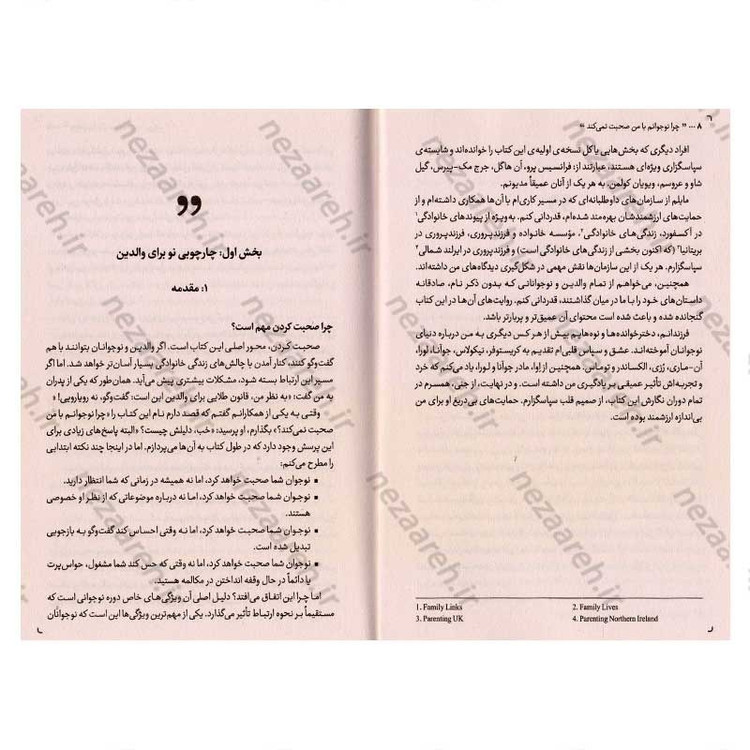 ۸ ... « چرا نوجوانم با من صحبت نمی‌کند »
افراد دیگری که بخش‌هایی یا کل نسخه‌ی اولیه‌ی این کتاب را خوانده‌اند و شایسته‌ی
سپاسگزاری ویژه‌ای هستند، عبارتند از: فرانسیس پرو، آن هاگل، جرج مک-پیرس، گیل
شاو و عروسم، ویویان کولمن. به هر یک از آنان عمیقاً مدیونم.
مایلم از سازمان‌های داوطلبانه‌ای که در مسیر کاری‌ام با آن‌ها همکاری داشته‌ام و از
حمایت‌های ارزشمندشان بهره‌مند شده‌ام، قدردانی کنم. به‌ویژه از پیوندهای خانوادگی۱
در آکسفورد، زندگی‌های خانوادگی۲، مؤسسه خانواده و فرزندپروری، فرزندپروری در
بریتانیا۳ (که اکنون بخشی از زندگی‌های خانوادگی است) و فرزندپروری در ایرلند شمالی۴
سپاسگزارم. هر یک از این سازمان‌ها نقش مهمی در شکل‌گیری دیدگاه‌های من داشته‌اند.
همچنین، می‌خواهم از تمام والدین و نوجوانانی که بدون ذکر نام، صادقانه
داستان‌های خود را با ما در میان گذاشتند، قدردانی کنم. روایت‌های آن‌ها در این کتاب
گنجانده شده و باعث شده است محتوای آن عمیق‌تر و پربارتر باشد.
فرزندانم، دخترخوانده‌ها و نوه‌هایم بیش از هر کس دیگری به من درباره دنیای
نوجوانان آموخته‌اند. عشق و سپاس قلبی‌ام تقدیم به کریستوفر، نیکولاس، جوآنا، لورا،
آن-ماری، رُزی، الکساندر و توماس. همچنین از اِوا، مادر جوآنا و لورا، یاد می‌کنم که خرد
و تجربه‌اش تأثیر عمیقی بر یادگیری من داشته است. و در نهایت، از جِنی، همسرم در
تمام دوران نگارش این کتاب، از صمیم قلب سپاسگزارم. حمایت‌های بی‌دریغ او برای من
بی‌اندازه ارزشمند بوده است.
1. Family Links
2. Family Lives
3. Parenting UK
4. Parenting Northern Ireland
بخش اول: چارچوبی نو برای والدین
۱: مقدمه
چرا صحبت کردن مهم است؟
صحبت کردن، محور اصلی این کتاب است. اگر والدین و نوجوانان بتوانند با هم
گفت‌وگو کنند، کنار آمدن با چالش‌های زندگی خانوادگی بسیار آسان‌تر خواهد شد. اما اگر
مسیر این ارتباط بسته شود، مشکلات بیشتری پیش می‌آید. همان‌طور که یکی از پدران
به من گفت: «به نظر من، قانون طلایی برای والدین این است: گفت‌وگو، نه رویارویی! »
وقتی به یکی از همکارانم گفتم که قصد دارم نام این کتاب را «چرا نوجوانم با من
صحبت نمی‌کند؟» بگذارم، او پرسید: «خب، دلیلش چیست؟» «البته پاسخ‌های زیادی برای
این پرسش وجود دارد که در طول کتاب به آن‌ها می‌پردازم. اما در اینجا چند نکته ابتدایی
را مطرح می‌کنم:
▪ نوجوان شما صحبت خواهد کرد، اما نه همیشه در زمانی که شما انتظار دارید.
▪ نوجوان شما صحبت خواهد کرد، اما نه درباره موضوعاتی که از نظر او خصوصی
هستند.
▪ نوجوان شما صحبت خواهد کرد، اما نه وقتی احساس کند گفت‌وگو به بازجویی
تبدیل شده است.
▪ نوجوان شما صحبت خواهد کرد، اما نه وقتی که حس کند شما مشغول، حواس‌پرت
یا دائماً در حال وقفه انداختن در مکالمه هستید.
اما چرا این اتفاق می‌افتد؟ دلیل اصلی آن ویژگی‌های خاص دوره نوجوانی است که
مستقیماً بر نحوه ارتباط تأثیر می‌گذارد. یکی از مهم‌ترین ویژگی‌ها این است که نوجوانان
nezaareh.ir
nezaareh.ir
nezaareh.ir
nezaareh.ir
nezaareh.ir
nezaareh.ir
nezaareh.ir
nezaareh.ir